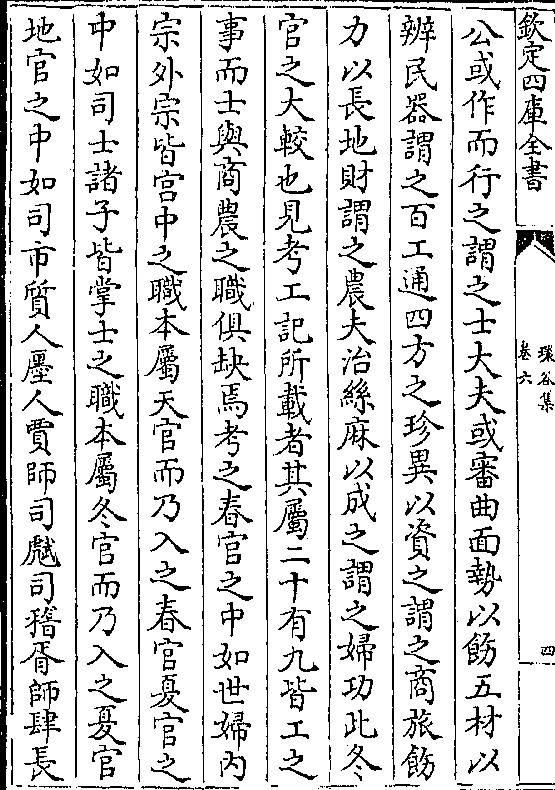 欽定四庫全書
瓌谷集
卷六
四
公或作而行之謂之士大夫或審曲面勢以飭五材以
辨民器謂之百工通四方之珍異以資之謂之商旅飭
力以長地財謂之農夫治絲麻以成之謂之婦功此冬
官之大較也見考工記所載者其屬二十有九皆工之
事而士與商農之職俱缺焉考之春官之中如世婦内
宗外宗皆宫中之職本屬天官而乃入之春官夏官之
中如司士諸子皆掌士之職本屬冬官而乃入之夏官
地官之中如司市質人廛人賈師司虣司稽胥師肆長